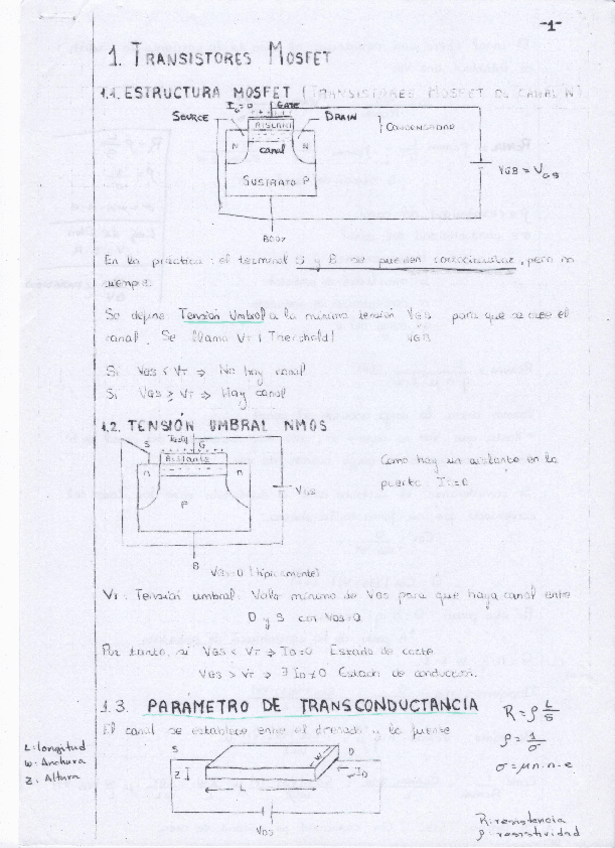 -1-
1. TRANSISTORES MOSFET
1.1. ESTRUCTURA MOSFET (TRANSISTORES MOSFET DE CANAL N)
GATE
SOURCE
DRAIN
AISLANT
CONDENSADOR
N canal N
SUSTRATO P
VGB = VGS
BODY
En la práctica: el terminal S y B se pueden cortocircuitar, pero no
siempre.
Se define Tensión Umbral a la mínima tensión VGS para que se cree el
canal. Se llama VT (Threshold)
VGB
Si VGS < VT ⇒ No hay canal
Si VGS ≥ VT ⇒ Hay canal
1.2. TENSIÓN UMBRAL NMOS
S
G
Aislante
n n
P
VGS
B
Como hay un aislante en la
puerta: IG=0
VBS=0 (típicamente)
VT: Tensión umbral: Valor mínimo de VGS para que haya canal entre
D y S con VDS=0
Por tanto, si VGS < VT ⇒ ID=0 Estado de corte
VGS > VT ⇒ ∃ ID≠0 Estado de conducción.
1.3. PARÁMETRO DE TRANSCONDUCTANCIA
El canal se establece entre el drenado y la fuente
R = ρ L/S
ρ = 1/σ
σ = μn·n·e
L: longitud
W: Anchura
Z: Altura
S
D
W
Z
L
ID
VDS
R: resistencia
ρ: resistividad